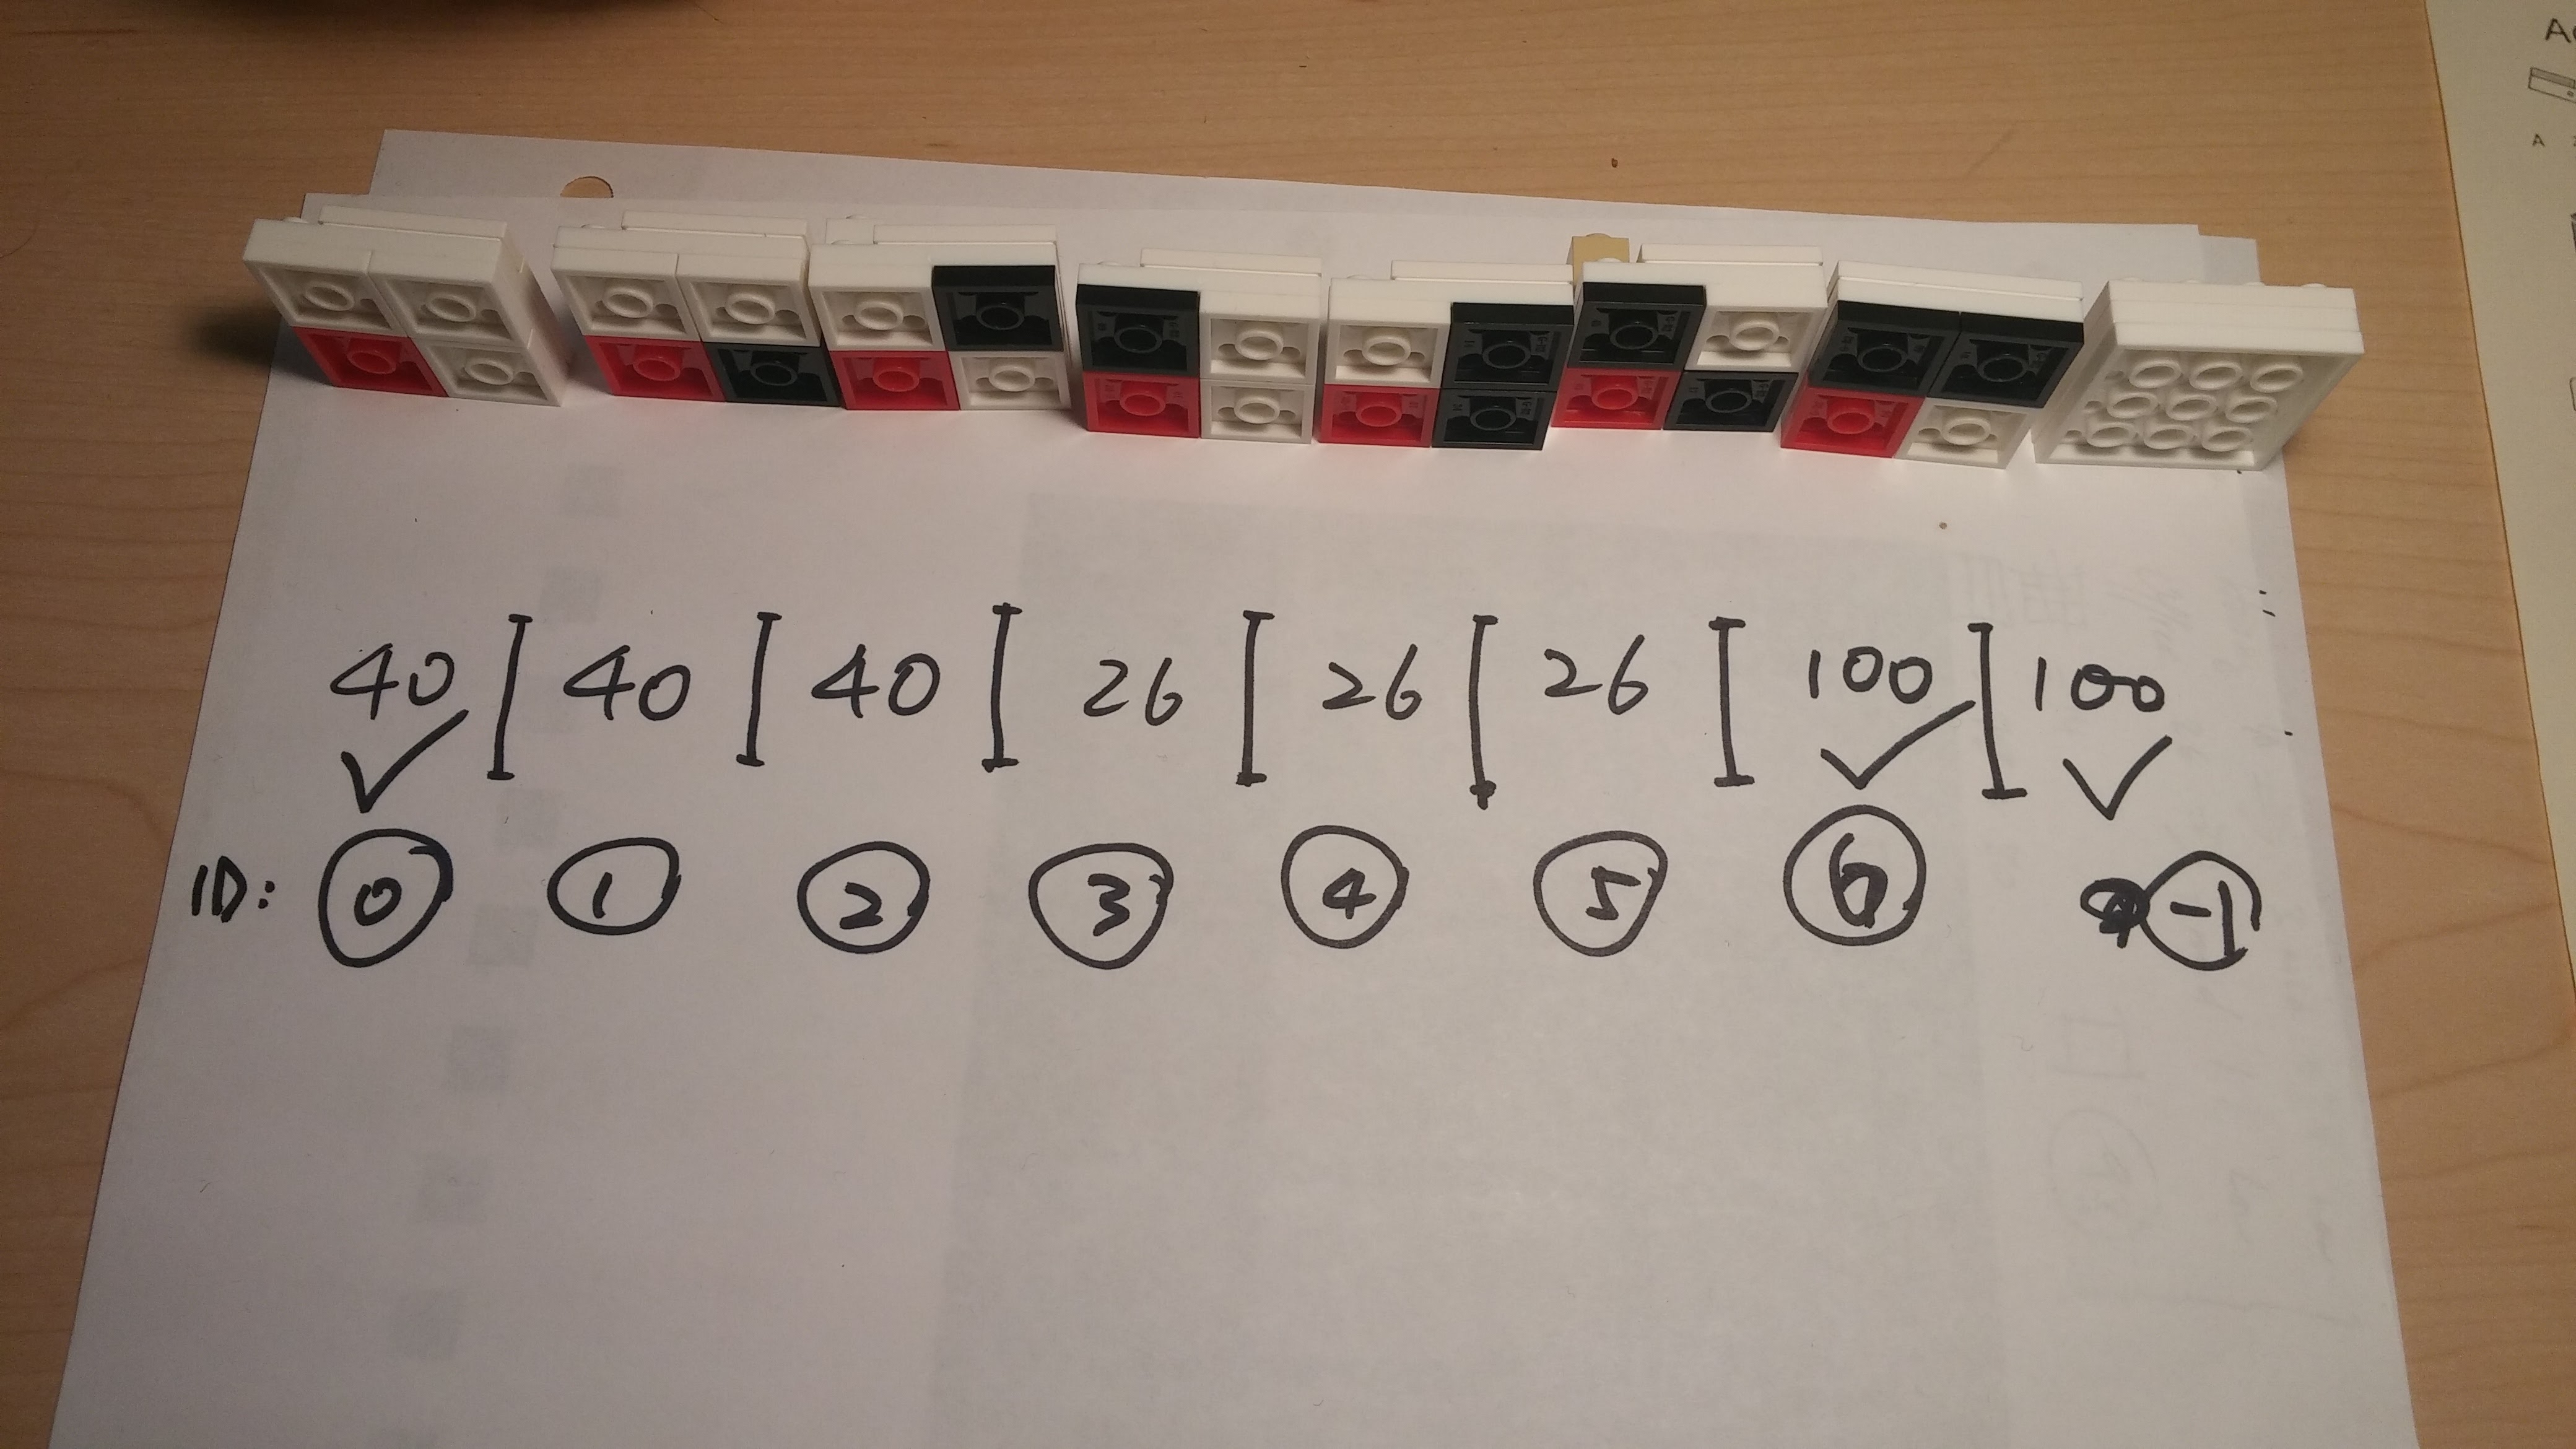 40 | 40 | 40 | 26 | 26 | 26 | 100 | 100
✓ ✓ ✓
ID: 0 1 2 3 4 5 6 -1
A